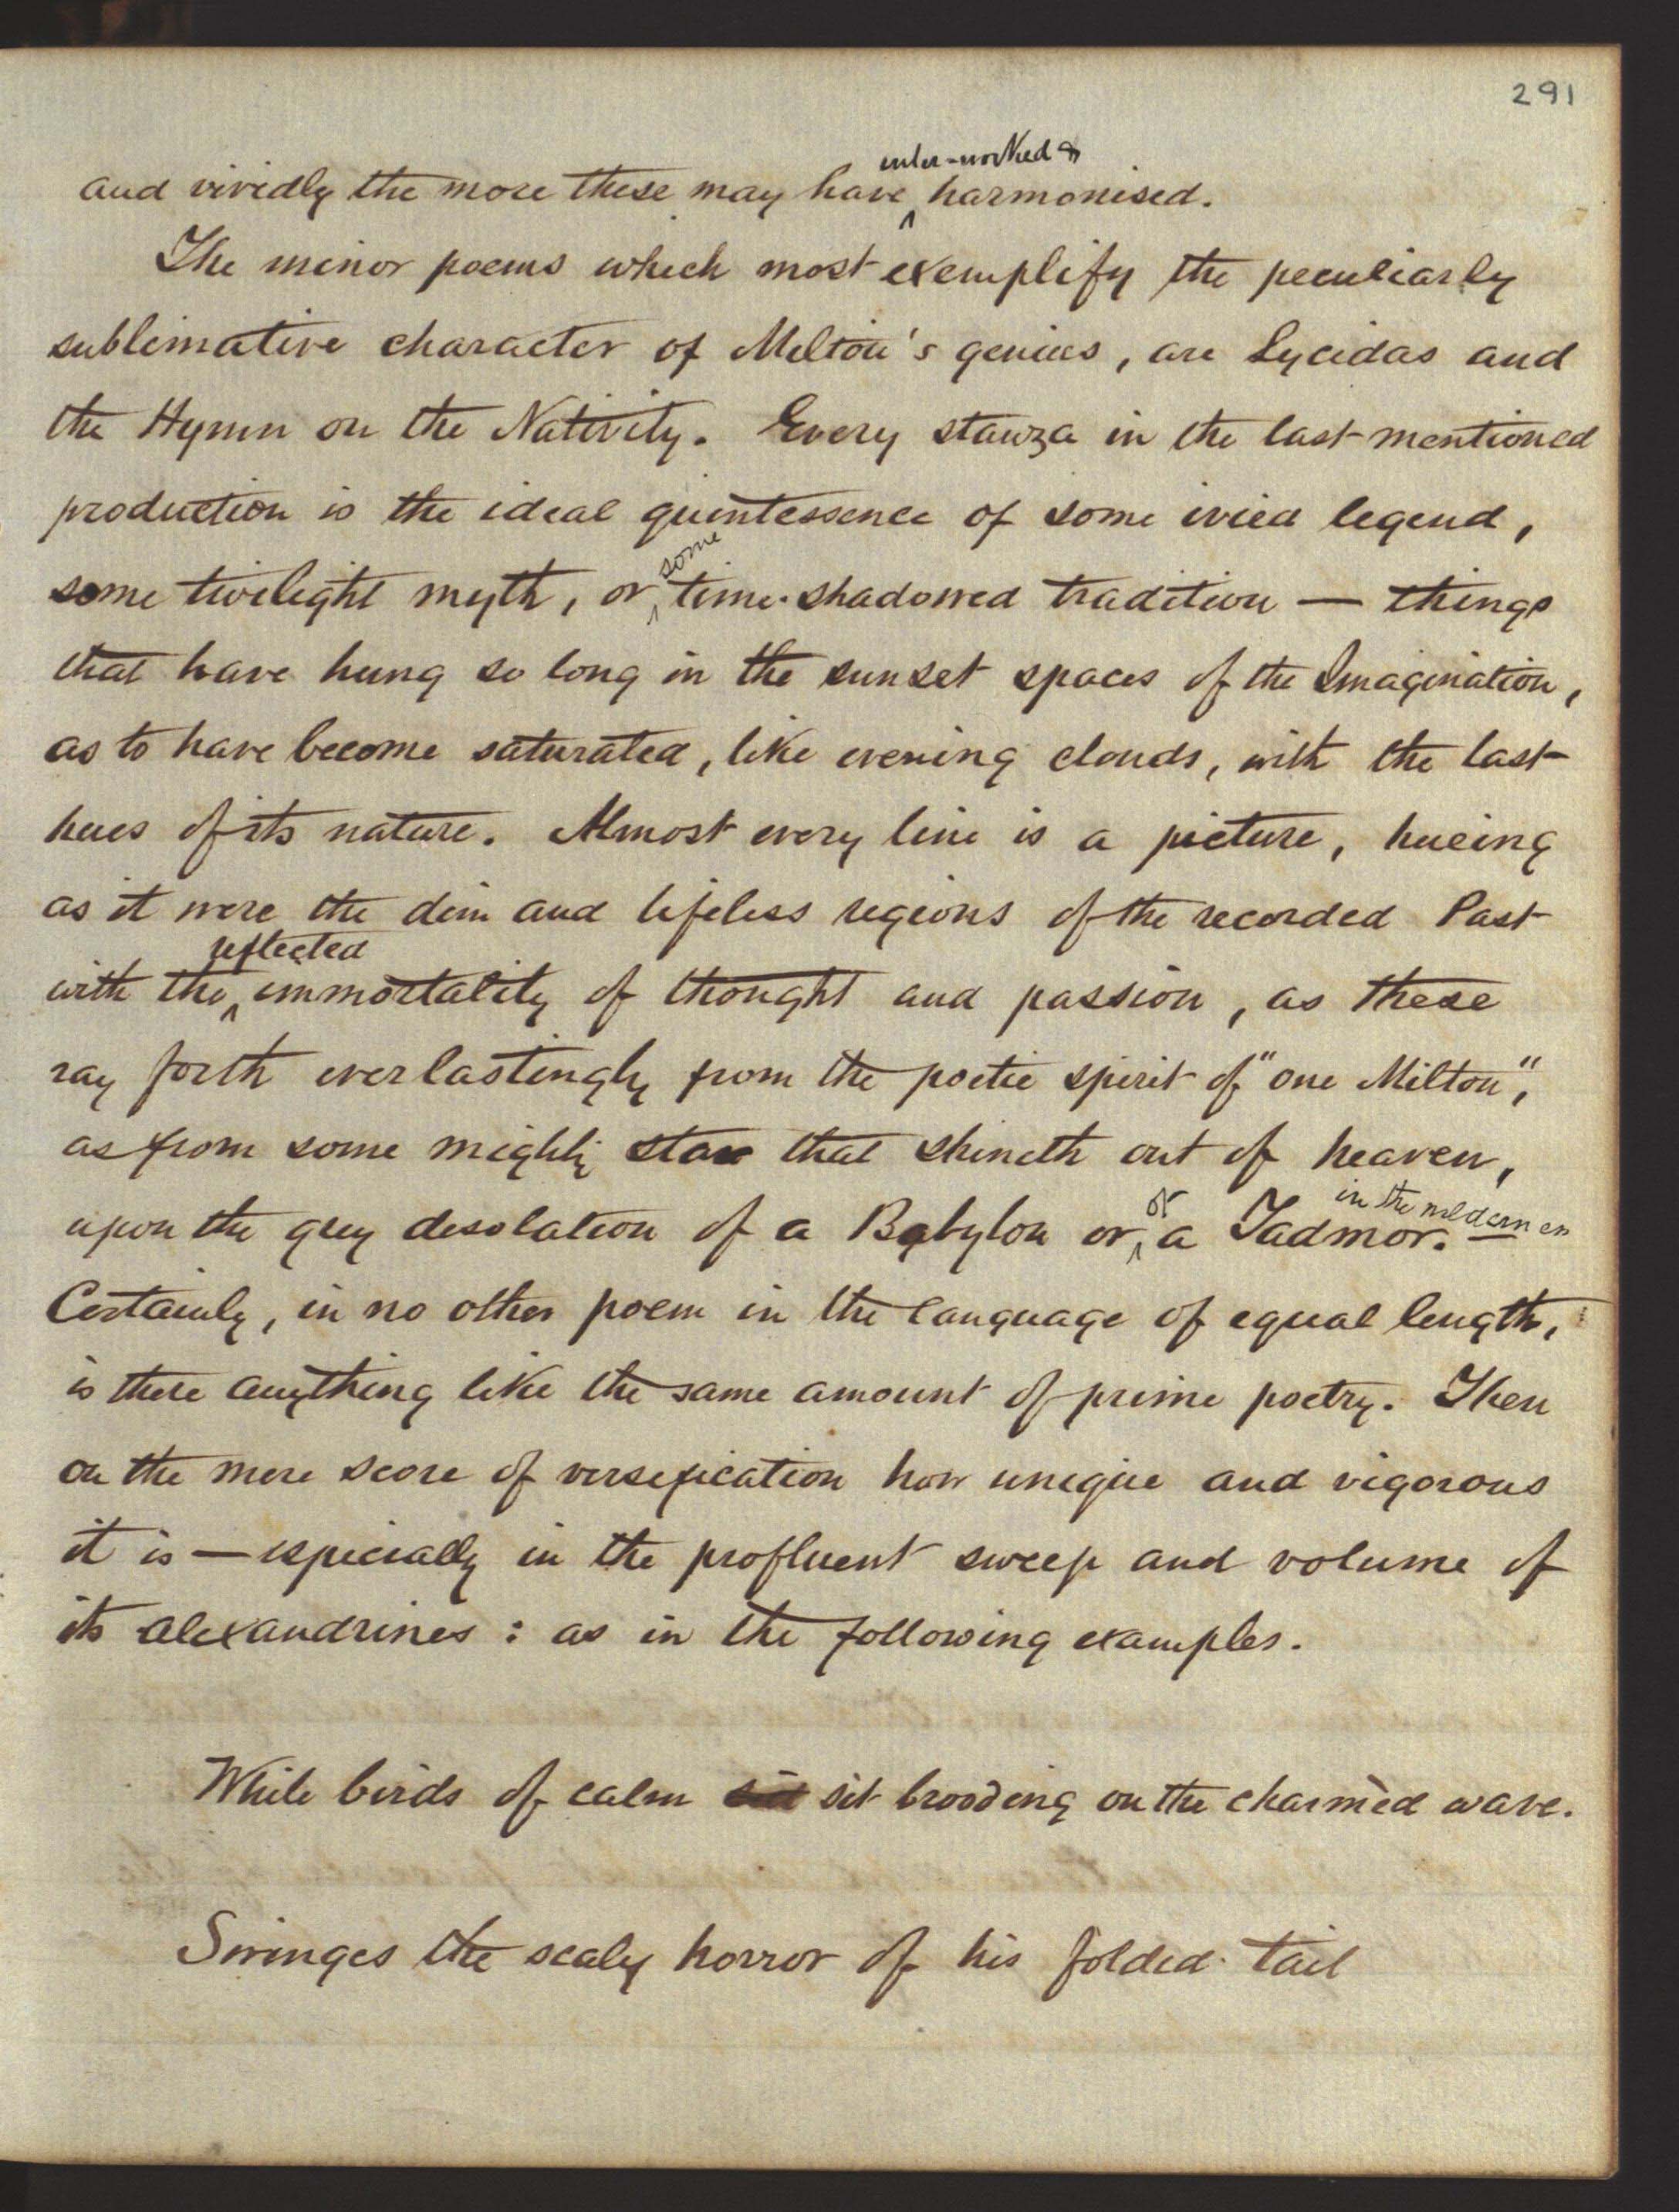 291
inter-worked &
and vividly the more these may have ^ harmonised.
The minor poems which most exemplify the peculiarly
sublimative character of Milton's genius, are Lycidas and
the Hymn on the Nativity. Every stanza in the last-mentioned
production is the ideal quintessence of some ivied legend,
some
some twilight myth, or ^ time-shadowed tradition — things
that have hung so long in the sunset spaces of the Imagination,
as to have become saturated, like evening clouds, with the last
hues of its nature. Almost every line is a picture, hueing
as it were the dim and lifeless regions of the recorded Past
reflected
with the ^ immortality of thought and passion, as these
ray forth everlastingly from the poetic spirit of "one Milton",
as from some mighty star that shineth out of heaven,
of in the wilderness
upon the grey desolation of a Babylon or ^ a Tadmor.
Certainly, in no other poem in the language of equal length,
is there anything like the same amount of prime poetry. Then
on the mere score of versification how unique and vigorous
it is — especially in the profluent sweep and volume of
its alexandrines : as in the following examples.
While birds of calm sit brooding on the charmèd wave.
Swinges the scaly horror of his folded tail